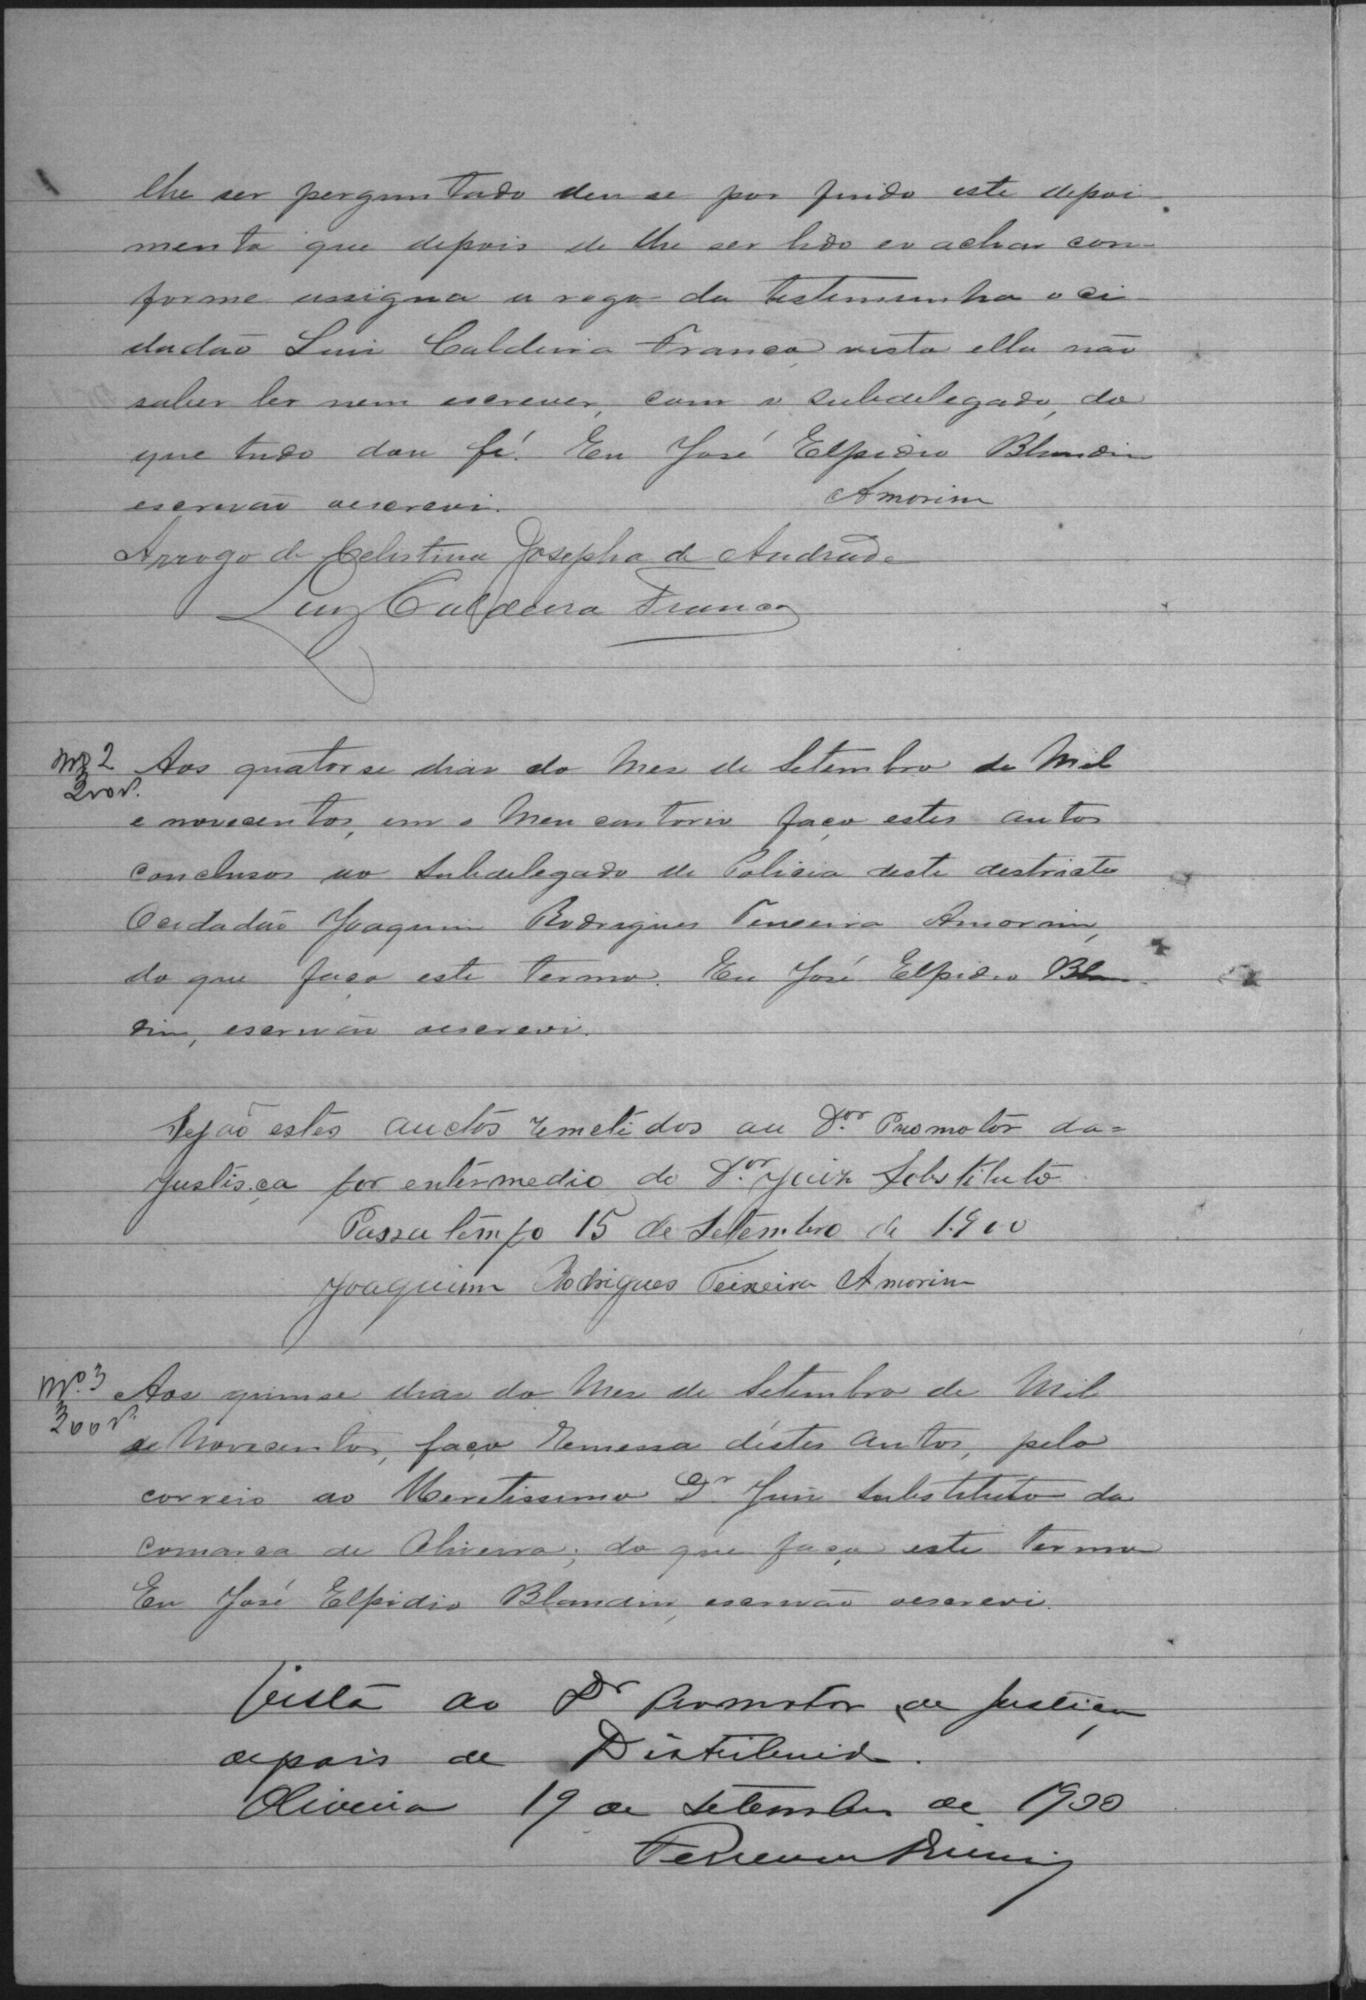 lhe ser perguntado deu se por findo este depoi-
mento que depois de lhe ser lido eo achar con-
forme assigna a rogo da testemunha o ci-
dadão Luiz Caldeira Franco, visto ella não
saber ler nem escrever, com o subdelegado, do
que tudo dou fé. Eu José Elpidio Blandin
escrivão oescrevi.
Amorim
Arrogo de Celestina Josepha de Andrade
Luiz Caldeira Franco
Nº 2
Aos quatorse dias do Mes de Setembro de Mil
e novecentos, em o Meu cartorio faço estes autos
conclusos ao Subdelegado de Policia deste destricto
Ocidadão Joaquim Rodrigues Teixeira Amorim,
do que faço este termo. Eu José Elpidio Blan-
din, escrivão oescrevi.
Sejão estes auctos remetidos au Dor. Promotor da=
Justisca por entermedio do Dor. Juiz Sobstituto
Passa tempo 15 de Setembro de 1900
Joaquim Rodrigues Teixeira Amorim
Nº 3
Aos quinse dias do Mes de Setembro de Mil
e Novecentos, faço Remessa déstes autos, pelo
correio ao Meretissimo Dr. Juiz Substituto da
comarca de Oliveira; do que faço este termo
Eu José Elpidio Blandin, escrivão oescrevi.
Vista ao Dr Promotor de Justiça,
depois de Distribuido.
Oliveira 19 de Setembro de 1900